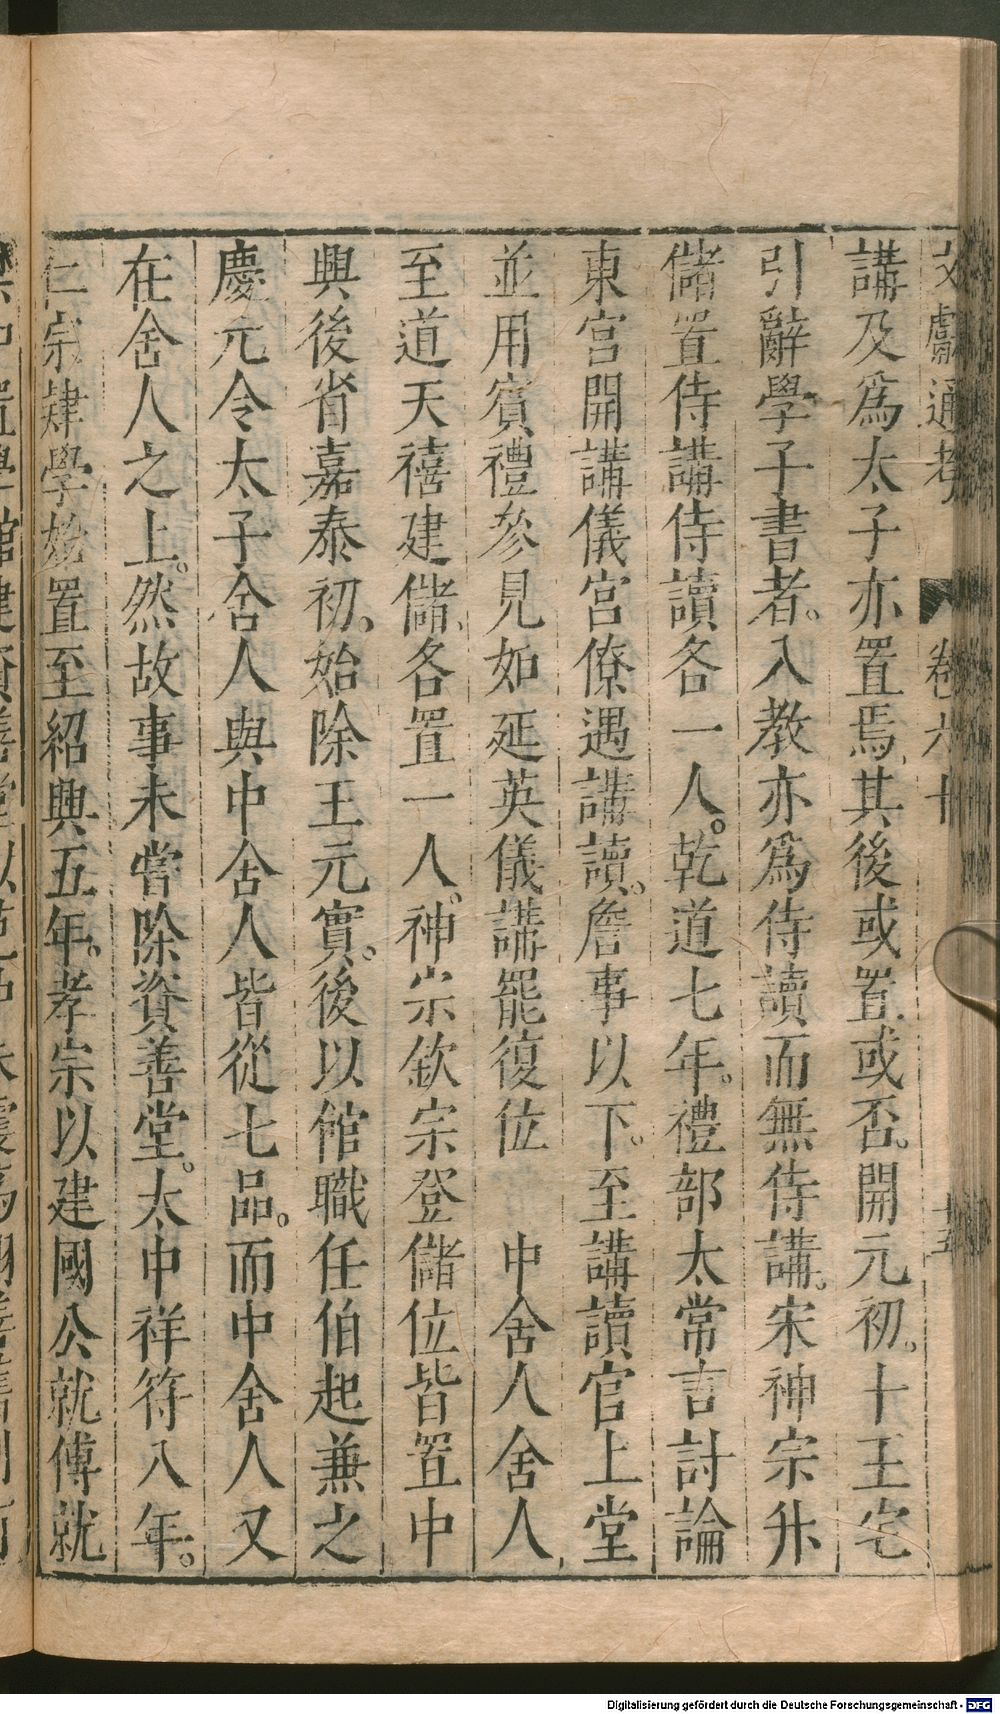 文獻通考 卷六十 十五
講及爲太子亦置焉其後或置或否。開元初。十王宅
引辭學子書者。入教亦爲侍讀而無侍講。宋神宗升
儲置侍講侍讀各一人。乾道七年。禮部太常言討論
東宮開講儀宮僚遇講讀。詹事以下。至講讀官上堂
並用賓禮參見如延英儀講罷復位 中舍人舍人
至道天禧建儲、各置一人。神宗欽宗登儲位皆置中
興後省嘉泰初。始除王元實。後以館職任伯起兼之
慶元令太子舍人與中舍人皆從七品。而中舍人又
在舍人之上。然故事未嘗除資善堂。太中祥符八年。
仁宗肄學始置至紹興五年。孝宗以建國公就傅就
Digitalisierung gefördert durch die Deutsche Forschungsgemeinschaft - DFG